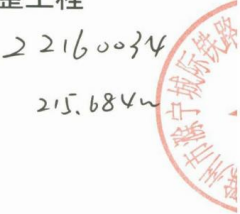 整工程
22160034
215.684m
滁州市滁宁城际铁路